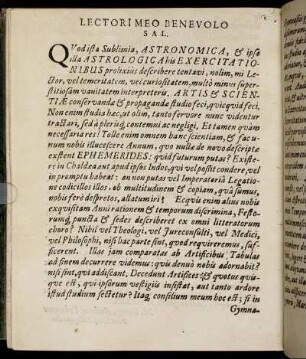 LECTORI MEO BENEVOLO
SAL.
QVod ista Sublimia, ASTRONOMICA, & ipsa
illa ASTROLOGICA his EXERCITATIO-
NIBUS prolixius describere tentavi, nolim, mi Le-
ctor, vel temeritatem, vel curiositatem, multò minus super-
stitiosam vanitatem interpreteris. ARTIS & SCIEN-
TIÆ conservandæ & propagandæ studio feci, quicquid feci.
Non enim studia hæc, at olim, tanto fervore nunc videntur
tractari, sed à plerisq; contemni ac negligi. Et tamen quàm
necessaria res! Tolle enim omnem hanc scientiam, & fac u-
num nobis illucescere Annum, quo nullæ de novo descriptæ
exstent EPHEMERIDES: quid futurum putas? Existe-
re in Chaldæa aut apud ipsos Indos, qui vel posthac edere, vel
in promptu habeat: an non putas vel Imperatoria Legatio-
ne codicillos illos ab multitudinem & copiam, quâ sumus,
nobis ferè despretos, allatum iri? Ecquis enim alius nobis
exquisitam Anni rationem & temporum discrimina, Festo-
rumq; puncta & sedes describeret ex omni litteratorum
choro? Nihil vel Theologi, vel Jureconsulti, vel Medici,
vel Philosophi, nisi hac parte sint, quod requiremus, suf-
ficerent. Illæ jam comparatæ ab Artificibus Tabulæ
ad finem decurrere videmus: quis denuò nobis adornabit?
nisi sint, qui addiscant, Decedunt Artifices: & quotus quis-
que est, qui ipsorum vestigiis insistat, aut tanto ardore
istud studium sectetur? Itaq; consilium meum hoc est; si in
Gymna-